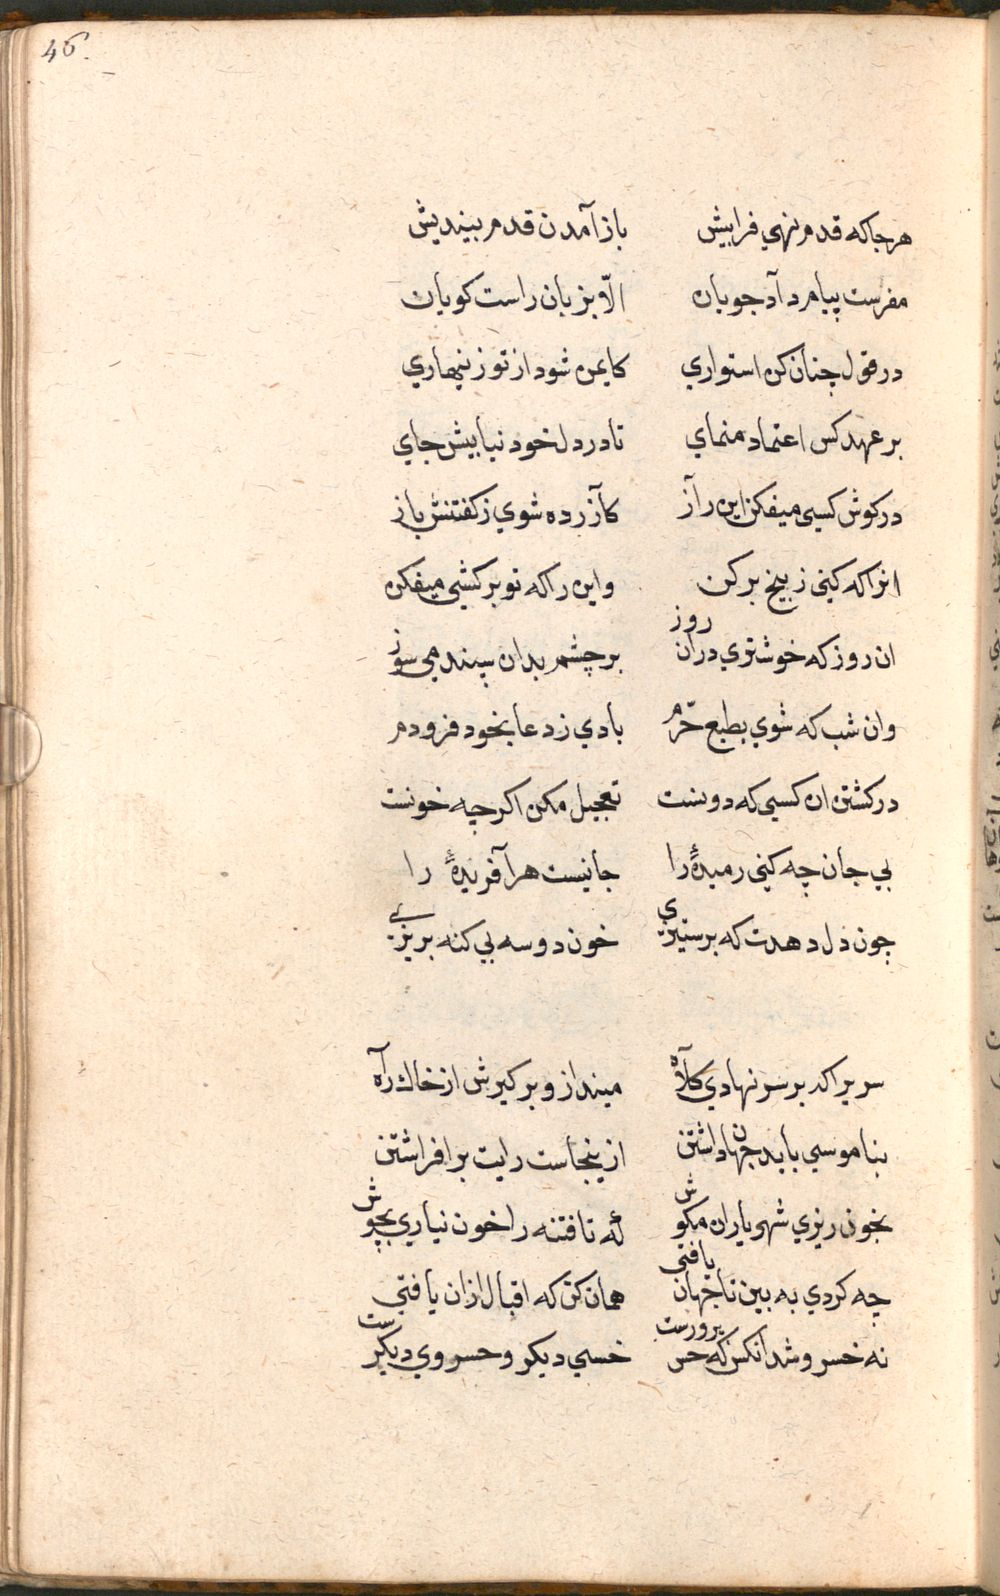 46.
هرجا که قدم نهي فرا پیش باز آمدن قدم بیندیش
مفرست پیام داد جویان الّا بزبان راست کویان
در قول چنان کن استواري کایمن شود از تو زینهاري
بر عهد کس اعتماد منماي تا در دل خود نیابیش جاي
در کوش کسی میفکن این راز کآزرده شوي ز کفتنش باز
انرا که کنی ز بیخ بر کن واین را که تو بر کشی میفکن
ان روز که خوشتري دران روز بر چشم بدان سپند می سوز
وان شب که شوي بطبع خرّم بادي ز دعا بخود فرو دم
در کشتن ان کسی که دونست تعجیل مکن اکرچه خونست
بي جان چه کنی رمیدۀ را جانیست هر آفریدۀ را
چون دل دهدت که بر ستیزي خون دو سه بي کنه بریزي
سریرا که بر سر نهادي کلآه مینداز و بر کیرش از خاك رآه
بناموسي باید جهان داشتن ازینجاست رایت بر افراشتن
بخون ریزي شهریاران مکوش که تا فتنه را خون نیاري بجوش
چه کردي به بین تا جهان یافتی همان کن که اقبال ازان یافتي
نه خسرو شد انکس که خس پرورست خسي دیکر و خسروي دیکرست